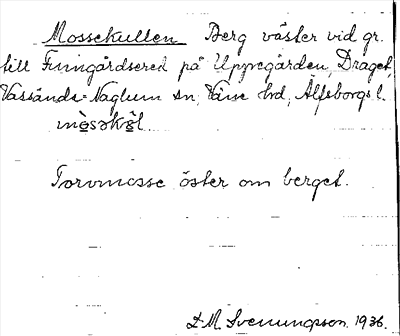 Mossekullen Berg väster vid gr.
till Finngårdsered på Uppegården, Draget,
Vassända-Naglum sn, Väne hd, Älfsborgs l.
mò̀səkɵ̀l.
Torvmosse öster om berget.
D. M. Svenungsson 1936.